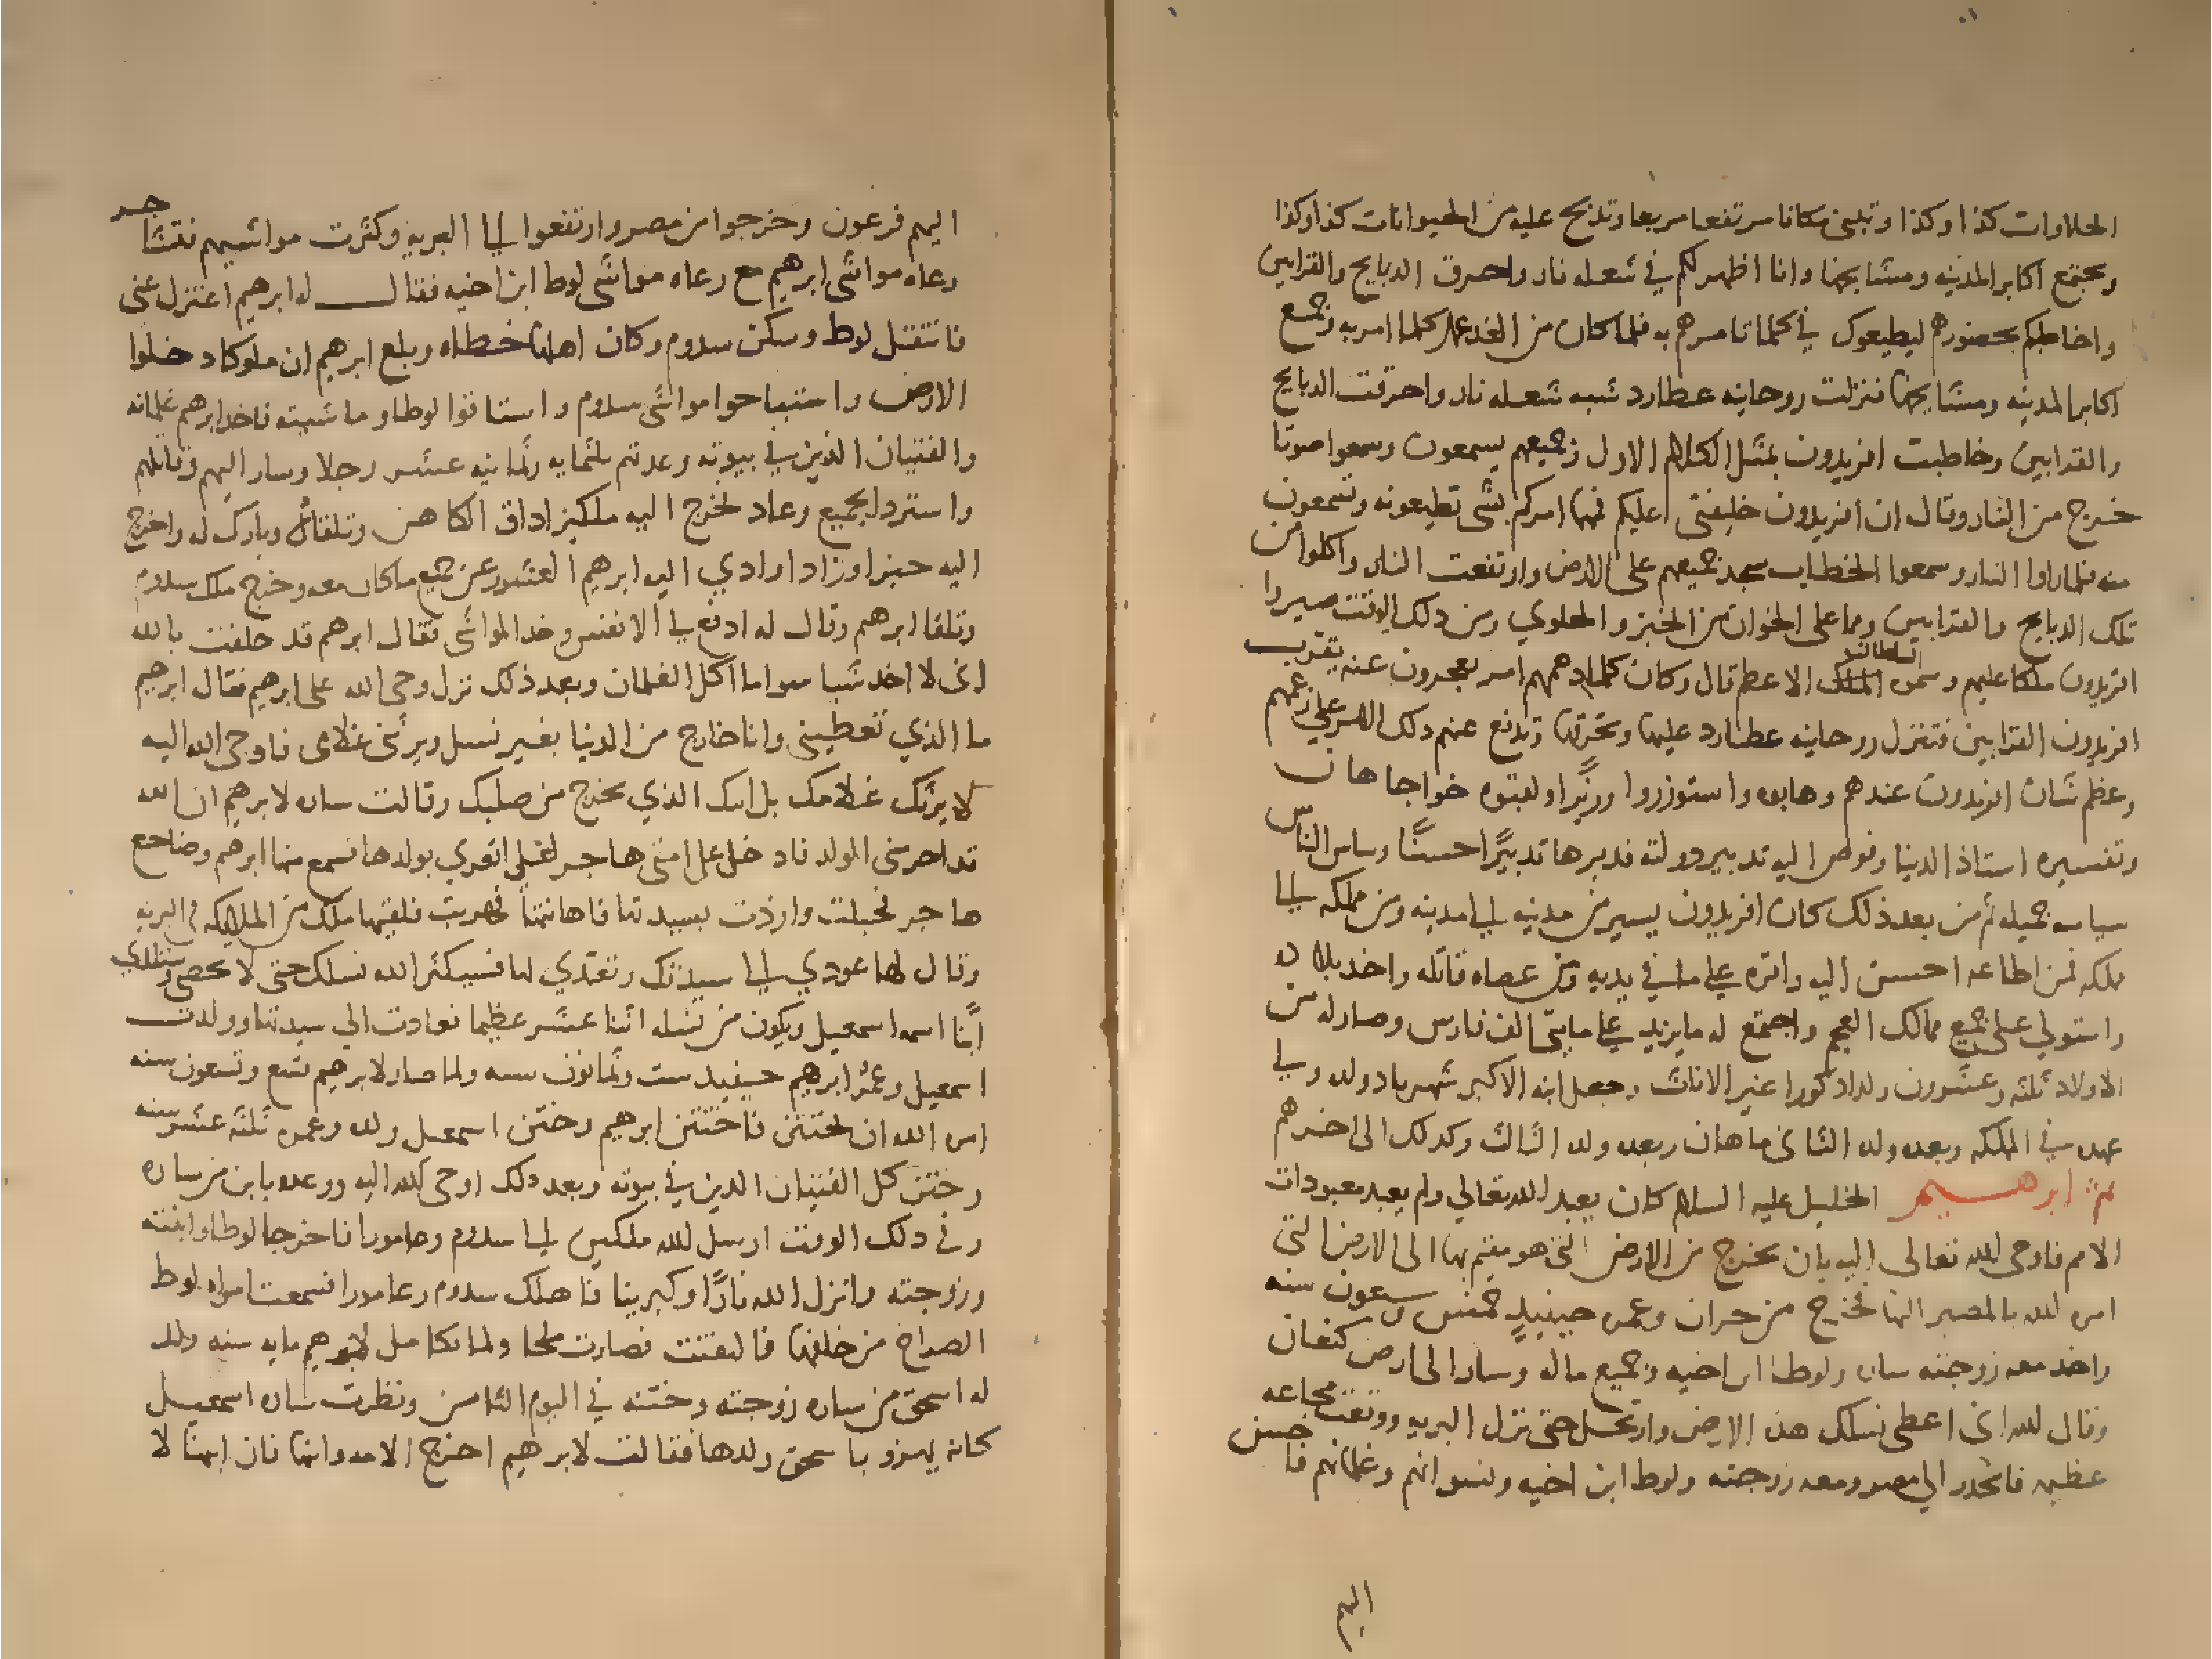 الحلاوات كذا وكذا وتبني مكانا مرتفعا مربعا وتذبح عليه من الحيوانات كذا وكذا
وتجتمع اكابر المدينه ومشايخها وانا اظهر لكم في شعله نار واحرق الدبايح والقرابين
واخاطبكم بحضورهم ليطيعوك في كلما تامرهم به فلما كان من الغد عمل كلما امر به وجمع
اكابر المدينه ومشايخها فنزلت روحانيه عطارد شبه شعله نار واحرقت الدبايح
والقرابين وخاطبت افريدون بمثل الكلام الاول وجميعهم يسمعون وسمعوا صوتا
خرج من النار وقال ان افريدون خليفتي عليكم فمهما امركم بشي تطيعونه وتسمعون
منه فلما راوا النار وسمعوا الخطاب سجد جميعهم على الارض وارتفعت النار واكلوا من
تلك الدبايح والقرابين وما على الخوان من الخبز والحلوي ومن دلك الوقت صيروا
افريدون ملكا عليهم وسموه الملك السلطان الاعظم قال وكان كلما دهمهم امر يعجزون عنه يقرب
افريدون القرابين فتنزل روحانيه عطارد عليها وتحرقها وتدفع عنهم دلك الامر على زعمهم
وعظم شان افريدون عندهم وهابوه واستوزروا وزيرا ولقبوه خواجا هان
وتفسيره استاذ الدنيا وفوض اليه تدبير دولته فدبرها تدبيرا حسنا وساس الناس
سياسه جميله ثم من بعد ذلك كان افريدون يسير من مدينه الى مدينه ومن مملكه الى
مملكه فمن اطاعه احسن اليه واقره على ما في يديه ومن عصاه قاتله واخد بلاده
واستولي على جميع ممالك العجم واجتمع له ما يزيد على مايتي الف فارس وصار له من
الاولاد ثلثه وعشرون ولدا دكورا غير الاناث وجعل ابنه الاكبر شهرباد ولده ولي
عهده في المملكه وبعده ولده الثاني ماهان وبعده ولده الثالث وكدلك الى اخرهم
ثم ابرهيم الخليل عليه السلام كان يعبد الله تعالي ولم يعبد معبودات
الامم فاوحى الله تعالى اليه بان يخرج من الارض التي هو مقيم بها الى الارض التي
امره الله بالمصير اليها فخرج من حران وعمره حينيد خمس وسبعون سنه
واخد معه زوجته ساره ولوطا ابن اخيه وجميع ماله وسار الى ارض كنعان
وقال الله اني اعطي نسلك هذه الارض وارتحل حتى نزل البريه ووقعت مجاعه
عظيمه فانحدر الى مصر ومعه زوجته ولوط ابن اخيه ونسوانهم وغلمانهم فاحسن
اليهم
اليهم فرعون وخرجوا من مصر وارتفعوا الى البريه وكثرت مواشيهم فتشاجر
رعاه مواشي ابرهيم مع رعاه مواشي لوط ابن اخيه فقال له ابرهيم اعتزل عني
فانتقل لوط وسكن سدوم وكان اهلها خطاه وبلغ ابرهيم ان ملوكا دخلوا
الارض واستباحوا مواشي سدوم واستاقوا لوطا وماشيته فاخد ابرهم غلمانه
والفتيان الذين في بيوته وعدتهم ثلثمايه وثمانيه عشر رجلا وسار اليهم وقاتلهم
واسترد الجميع وعاد فخرج اليه ملكيزاداق الكاهن وتلقاه وبارك له واخرج
اليه خبزا وزادا وادي اليه ابرهيم العشور عن جميع ما كان معه وخرج ملك سدوم
وتلقا ابرهم وقال له ادفع لي الانفس وخد المواشي فقال ابرهم قد حلفت بالله
اني لا اخد شيا سوا ما اكل الغلمان وبعد ذلك نزل وحي الله على ابرهيم فقال ابرهيم
ما الذي تعطيني وانا خارج من الدنيا بغير نسل ويرثني غلامي فاوحى الله اليه
لا يرثك غلامك بل ابنك الذي يخرج من صلبك وقالت ساره لابرهيم ان الله
قد احرمني الولد فادخل على امتي هاجر لعلي اتعزي بولدها فسمع منها ابرهم وضاجع
هاجر فحبلت وازرت بسيدتها فاهانتها فهربت فلقيها ملك من الملايكه في البريه
وقال لها عودي الى سيدتك وتعبدي لها فسيكثر الله نسلك حتى لا يحصى وستلدي
ابنا اسمه اسمعيل ويكون من نسله اثنا عشر عظيما فعادت الى سيدتها وولدت
اسمعيل وعمر ابرهيم حينيد ست وثمانون سنه ولما صار لابرهيم تسع وتسعون سنه
امره الله ان يختتن فاختتن ابرهيم وختن اسمعيل ولده وعمره ثلثه عشر سنه
وختن كل الفتيان الدين في بيوته وبعد دلك اوحى الله اليه ووعده بابن من ساره
وفي دلك الوقت ارسل الله ملكين الى سدوم وعامورا فاخرجا لوطا وابنته
وزوجته وانزل الله نارا وكبريتا فاهلك سدوم وعامورا فسمعت امراه لوط
الصراخ من خلفها فالتفتت فصارت ملحا ولما تكامل لابرهيم مايه سنه ولد
له اسحق من ساره زوجته وختنه في اليوم الثامن ونظرت ساره اسمعيل
كانه يهزو باسحق ولدها فقالت لابرهيم اخرج الامه وابنها فان ابنها لا